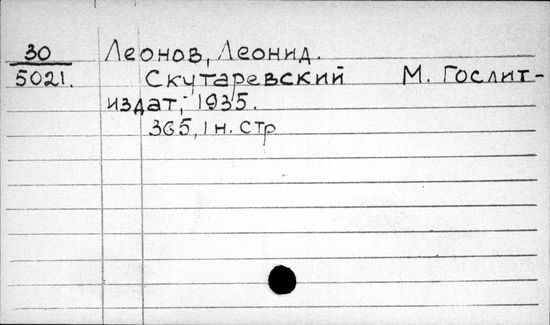 30 Леонов, Леонид.
5021. Скутаревский М. Гослит-
издат, 1935.
365, 1 н. стр